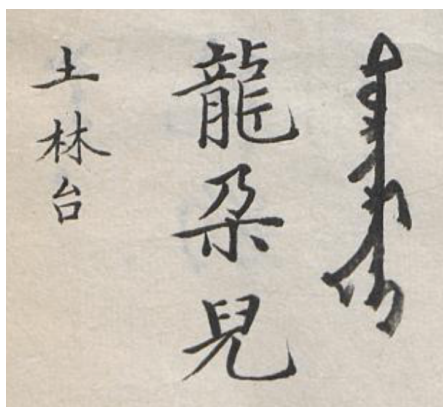 龍朶兒
土林台